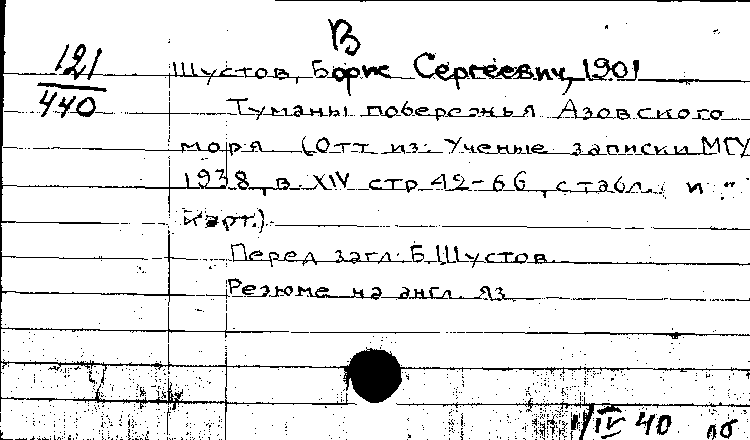 В
121
440
Шустов, Борис Сергеевич, 1901
Туманы побережья Азовского
моря. (Отт. из: Ученые записки МГУ
1938, в. XIV стр. 42-66, с табл. и
карт.).
Перед загл.: Б. Шустов.
Резюме на англ. яз.
1/IV 40